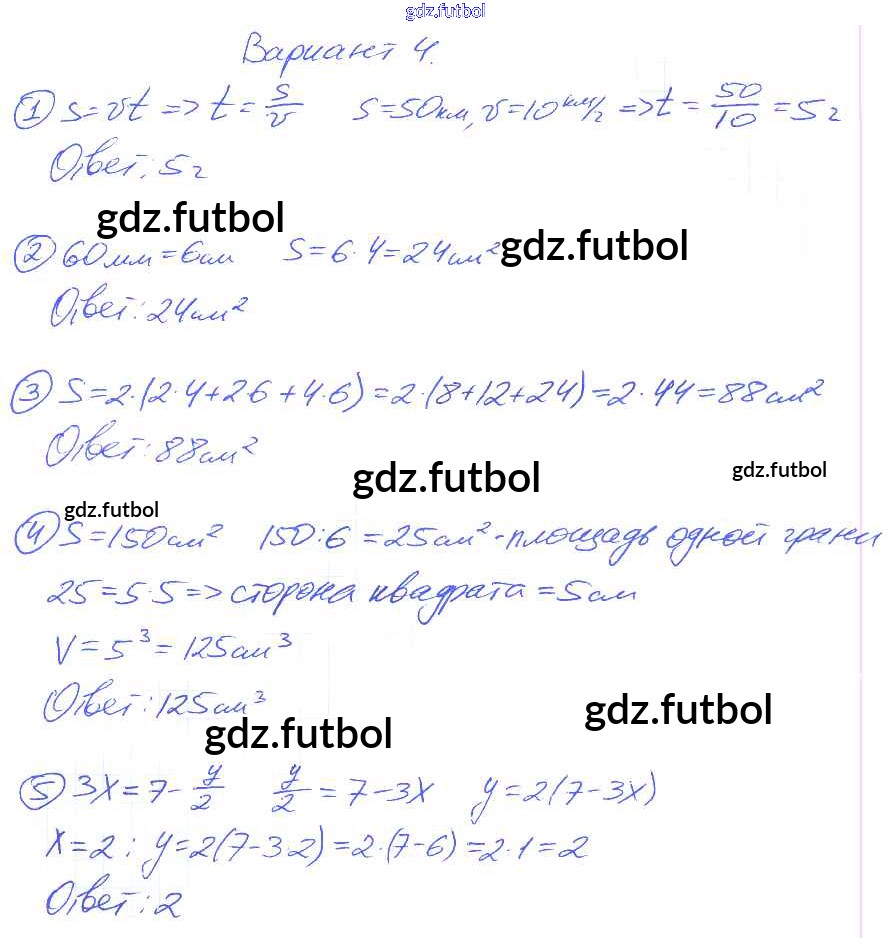 gdz.futbol
Вариант 4.
① S=vt => t = s/v   S=50км, v=10 км/г => t = 50/10 = 5г
Ответ: 5г
gdz.futbol
② 60мм = 6см   S = 6·4 = 24см² gdz.futbol
Ответ: 24см²
③ S=2·(2·4+2·6+4·6)=2·(8+12+24)=2·44=88см²
Ответ: 88см²
gdz.futbol gdz.futbol
gdz.futbol
④ S=150см²   150:6=25см² - площадь одной грани
25=5·5 => сторона квадрата = 5см
V=5³=125см³
Ответ: 125см³
gdz.futbol gdz.futbol
⑤ 3x=7-y/2   y/2=7-3x   y=2(7-3x)
x=2: y=2(7-3·2)=2·(7-6)=2·1=2
Ответ: 2